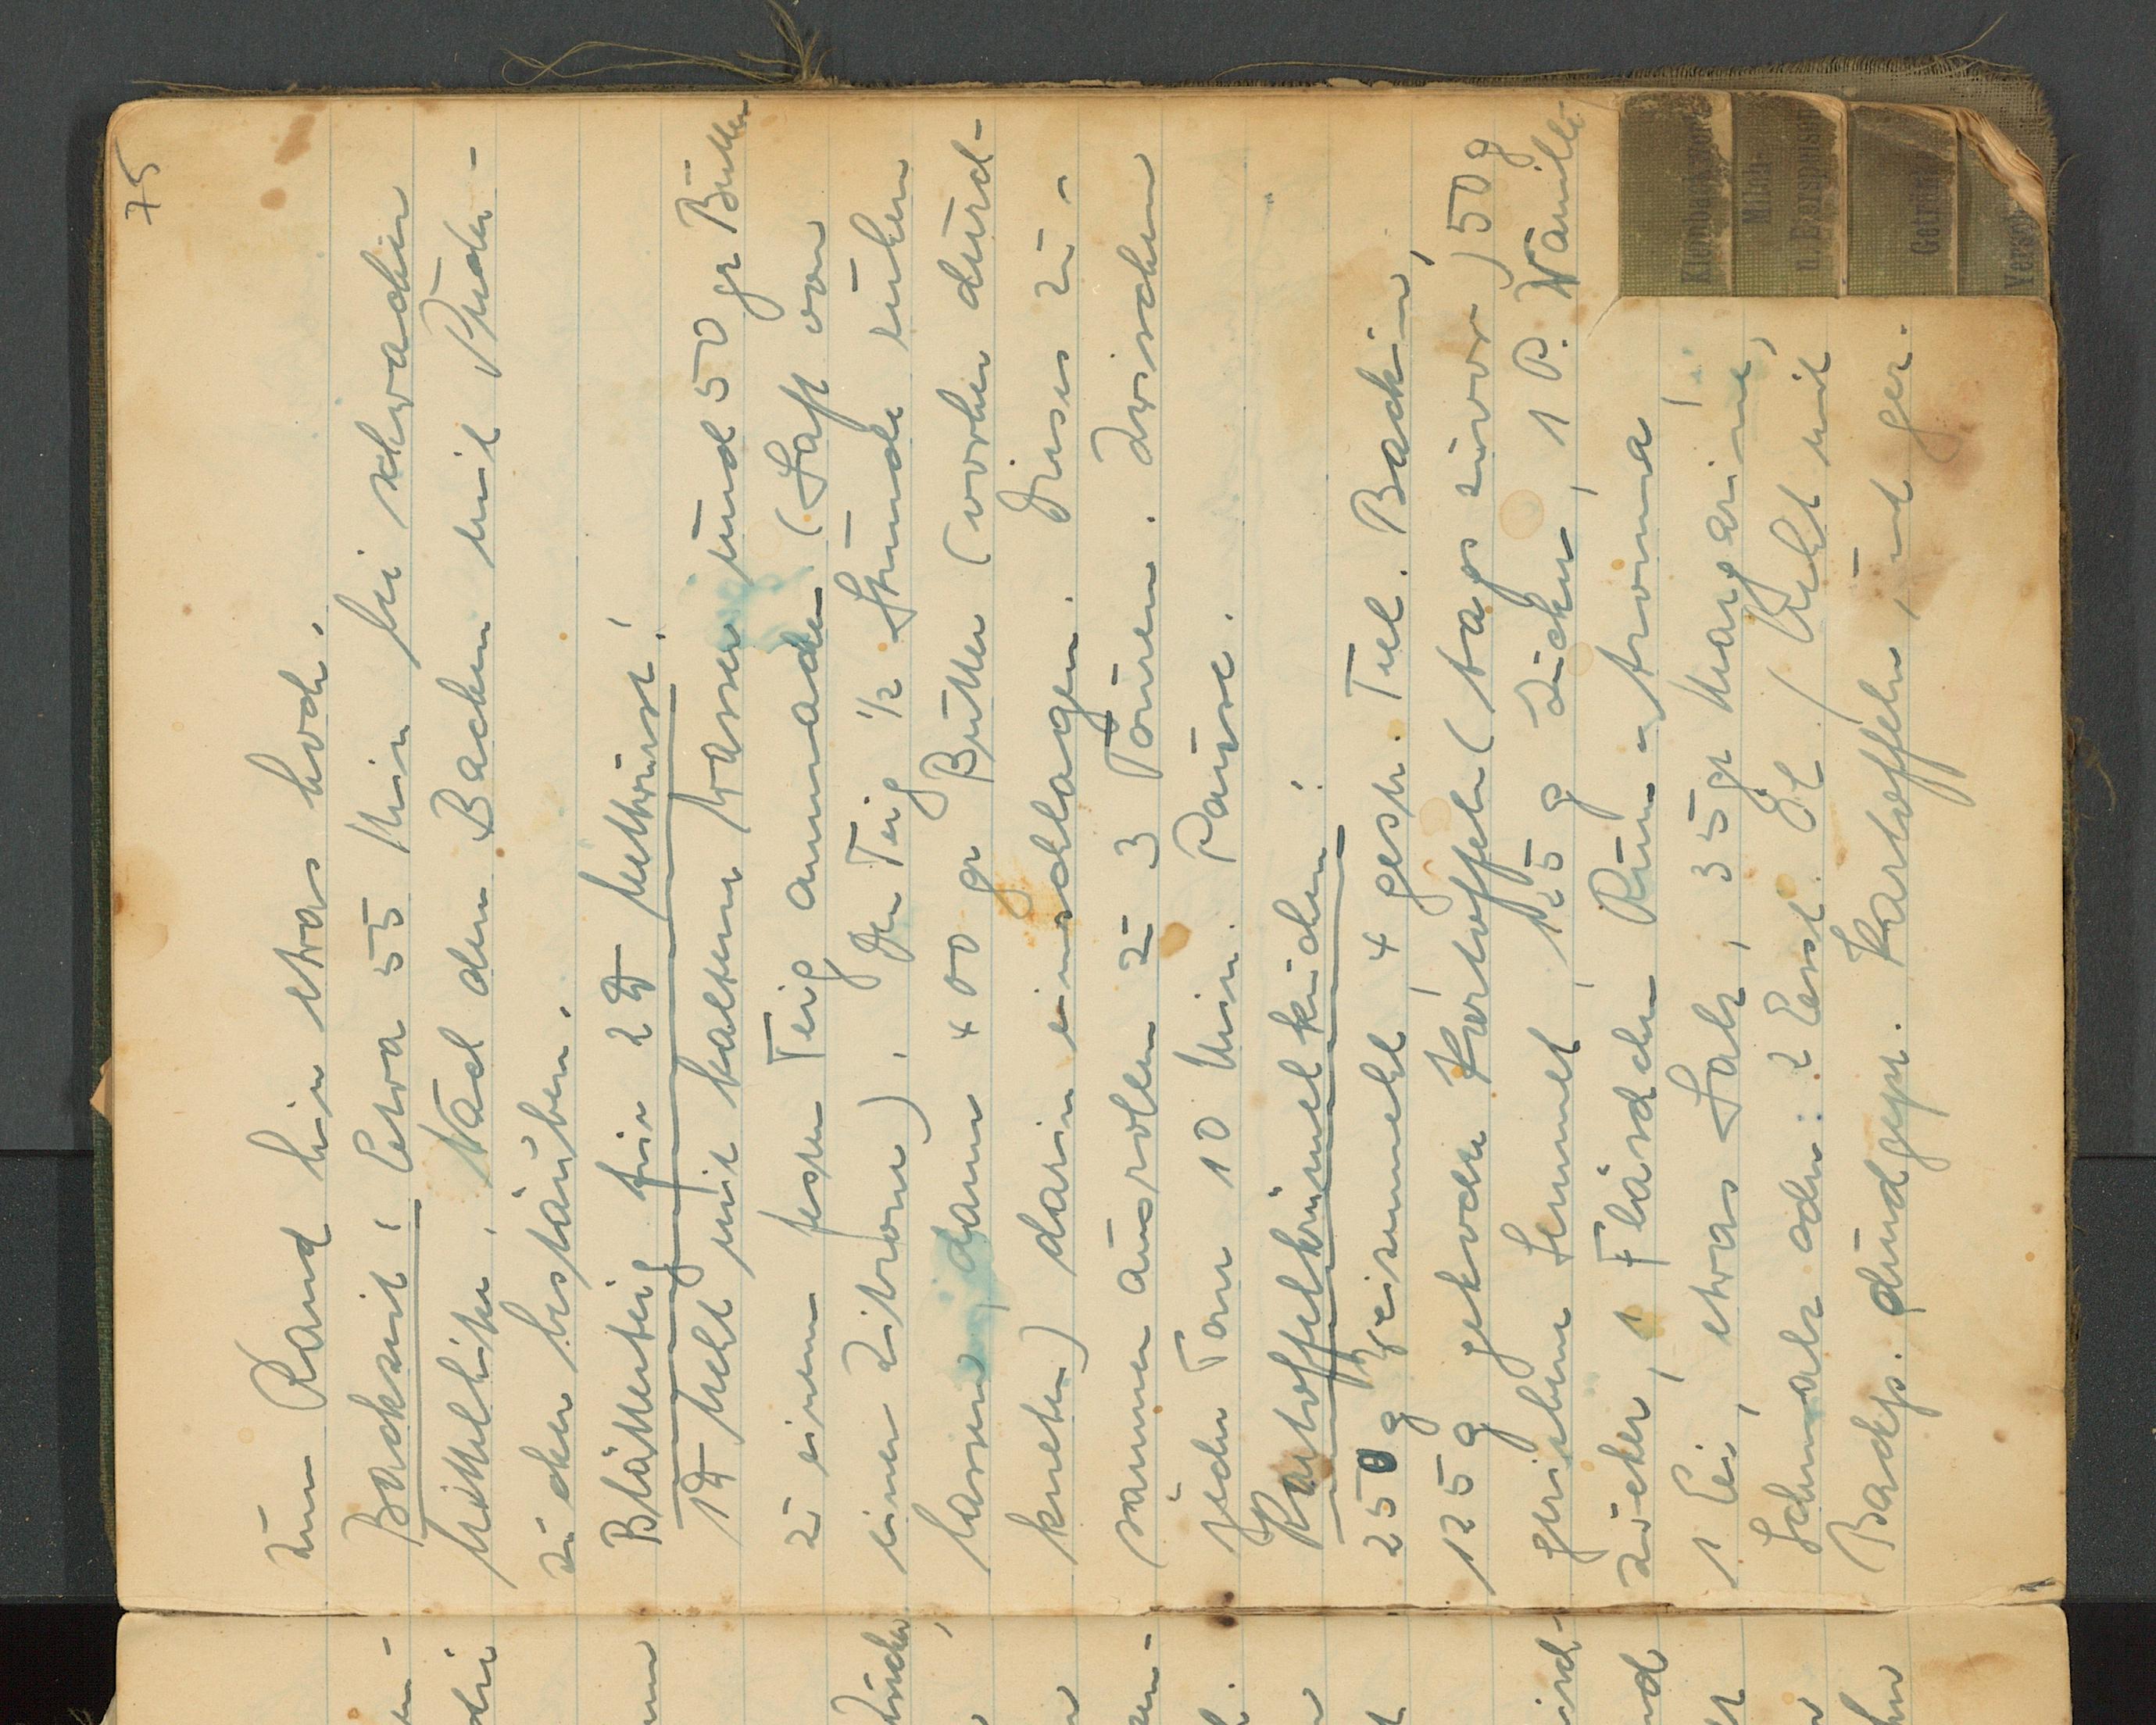 75
zum Rand hin etwas hoch.
Backzeit: Etwa 55 Min bei schwacher
Mittelhitze. Nach dem Backen mit Puder-
zucker bestäuben.
Blätterteig für 2 ℔ Mettwurst!
1 ℔ Mehl mit kaltem Wasser und 50 gr Butter
zu einem festen Teig anmachen (Saft von
einer Zitrone). Den Teig ½ Stunde ruhen
lassen, dann 400 gr Butter (vorher durch-
kneten) darin einschlagen. Dieses zu-
sammen ausrollen 2-3 Touren. Zwischen
jeder Tour 10 Min. Pause.
Kartoffelkrümelkuchen:
250 g Weizenmehl, 4 gestr. Teel. Backin,
125 g gekochte Kartoffeln (tags zuvor) 50 g
geriebene Semmel, 125 g Zucker, 1 P. Vanille-
zucker, 1 Fläschchen Rum-aroma
1 Ei, etwas Salz, 35 gr Margarine,
Schmalz oder: 2 Essl. Öl / Mehl mit
Backp. durchgesp. Kartoffeln, und ger.
Kleinbackwerk
Milch-
u. Eierspeisen
Getränke